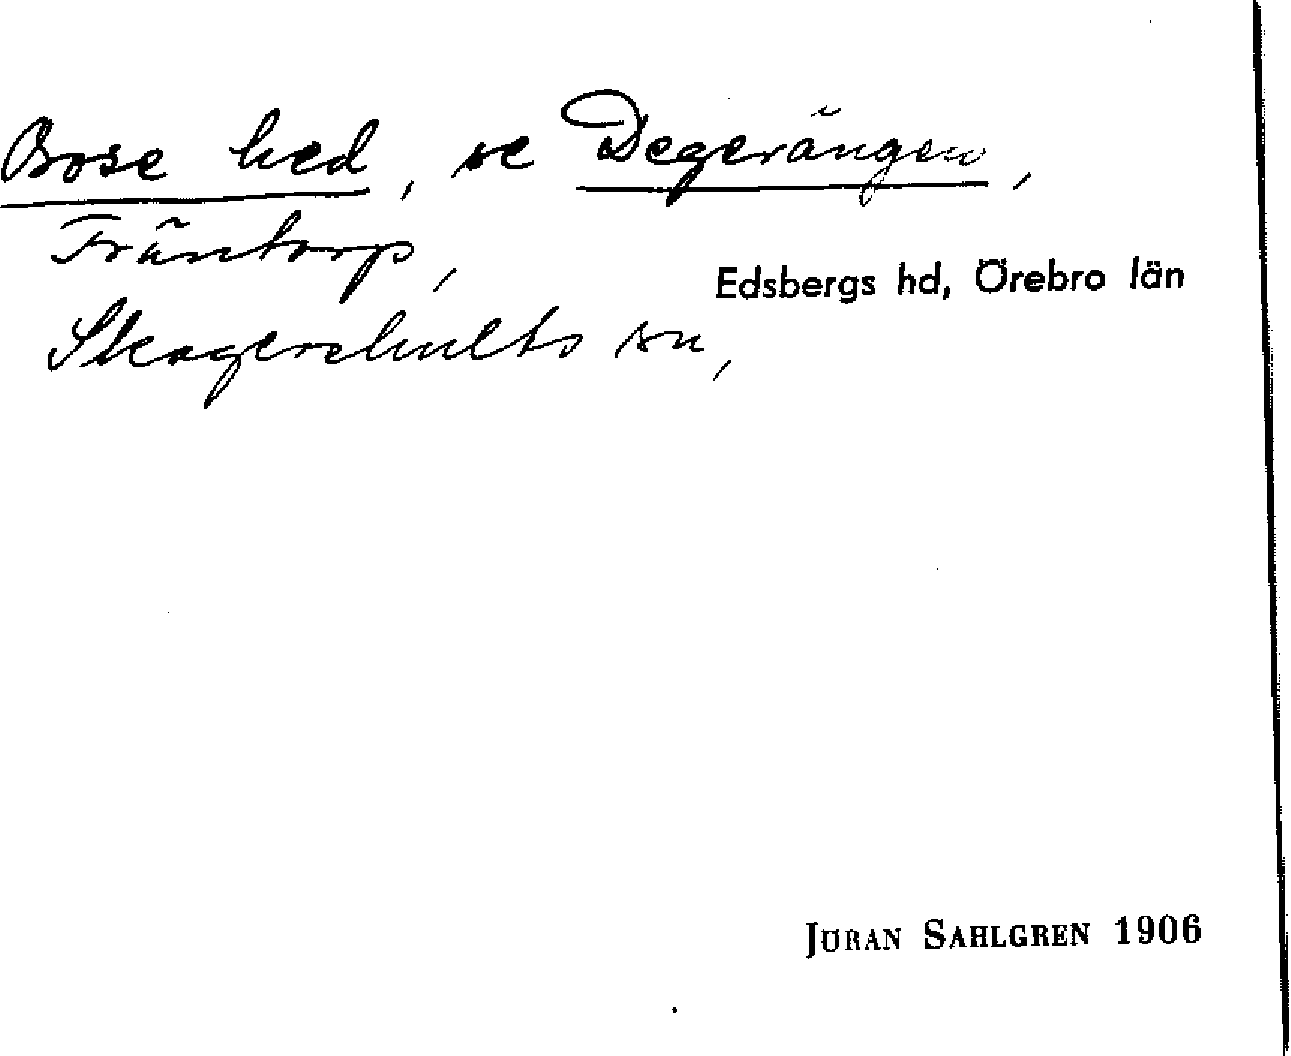 Bose hed, se Degerängen,
Fräntorp,
Edsbergs hd, Örebro län
Skagershults sn,
JÖRAN SAHLGREN 1906